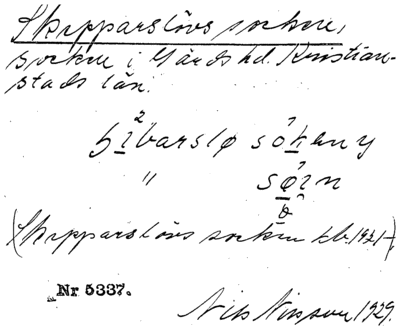 Skepparslövs socken,
socken i Gärds hd. Kristian-
stads län.
sökeny
" søin
(Skepparslövs socken kb. 1921-)
Nr 5337.
Nils Nilsson 1929.